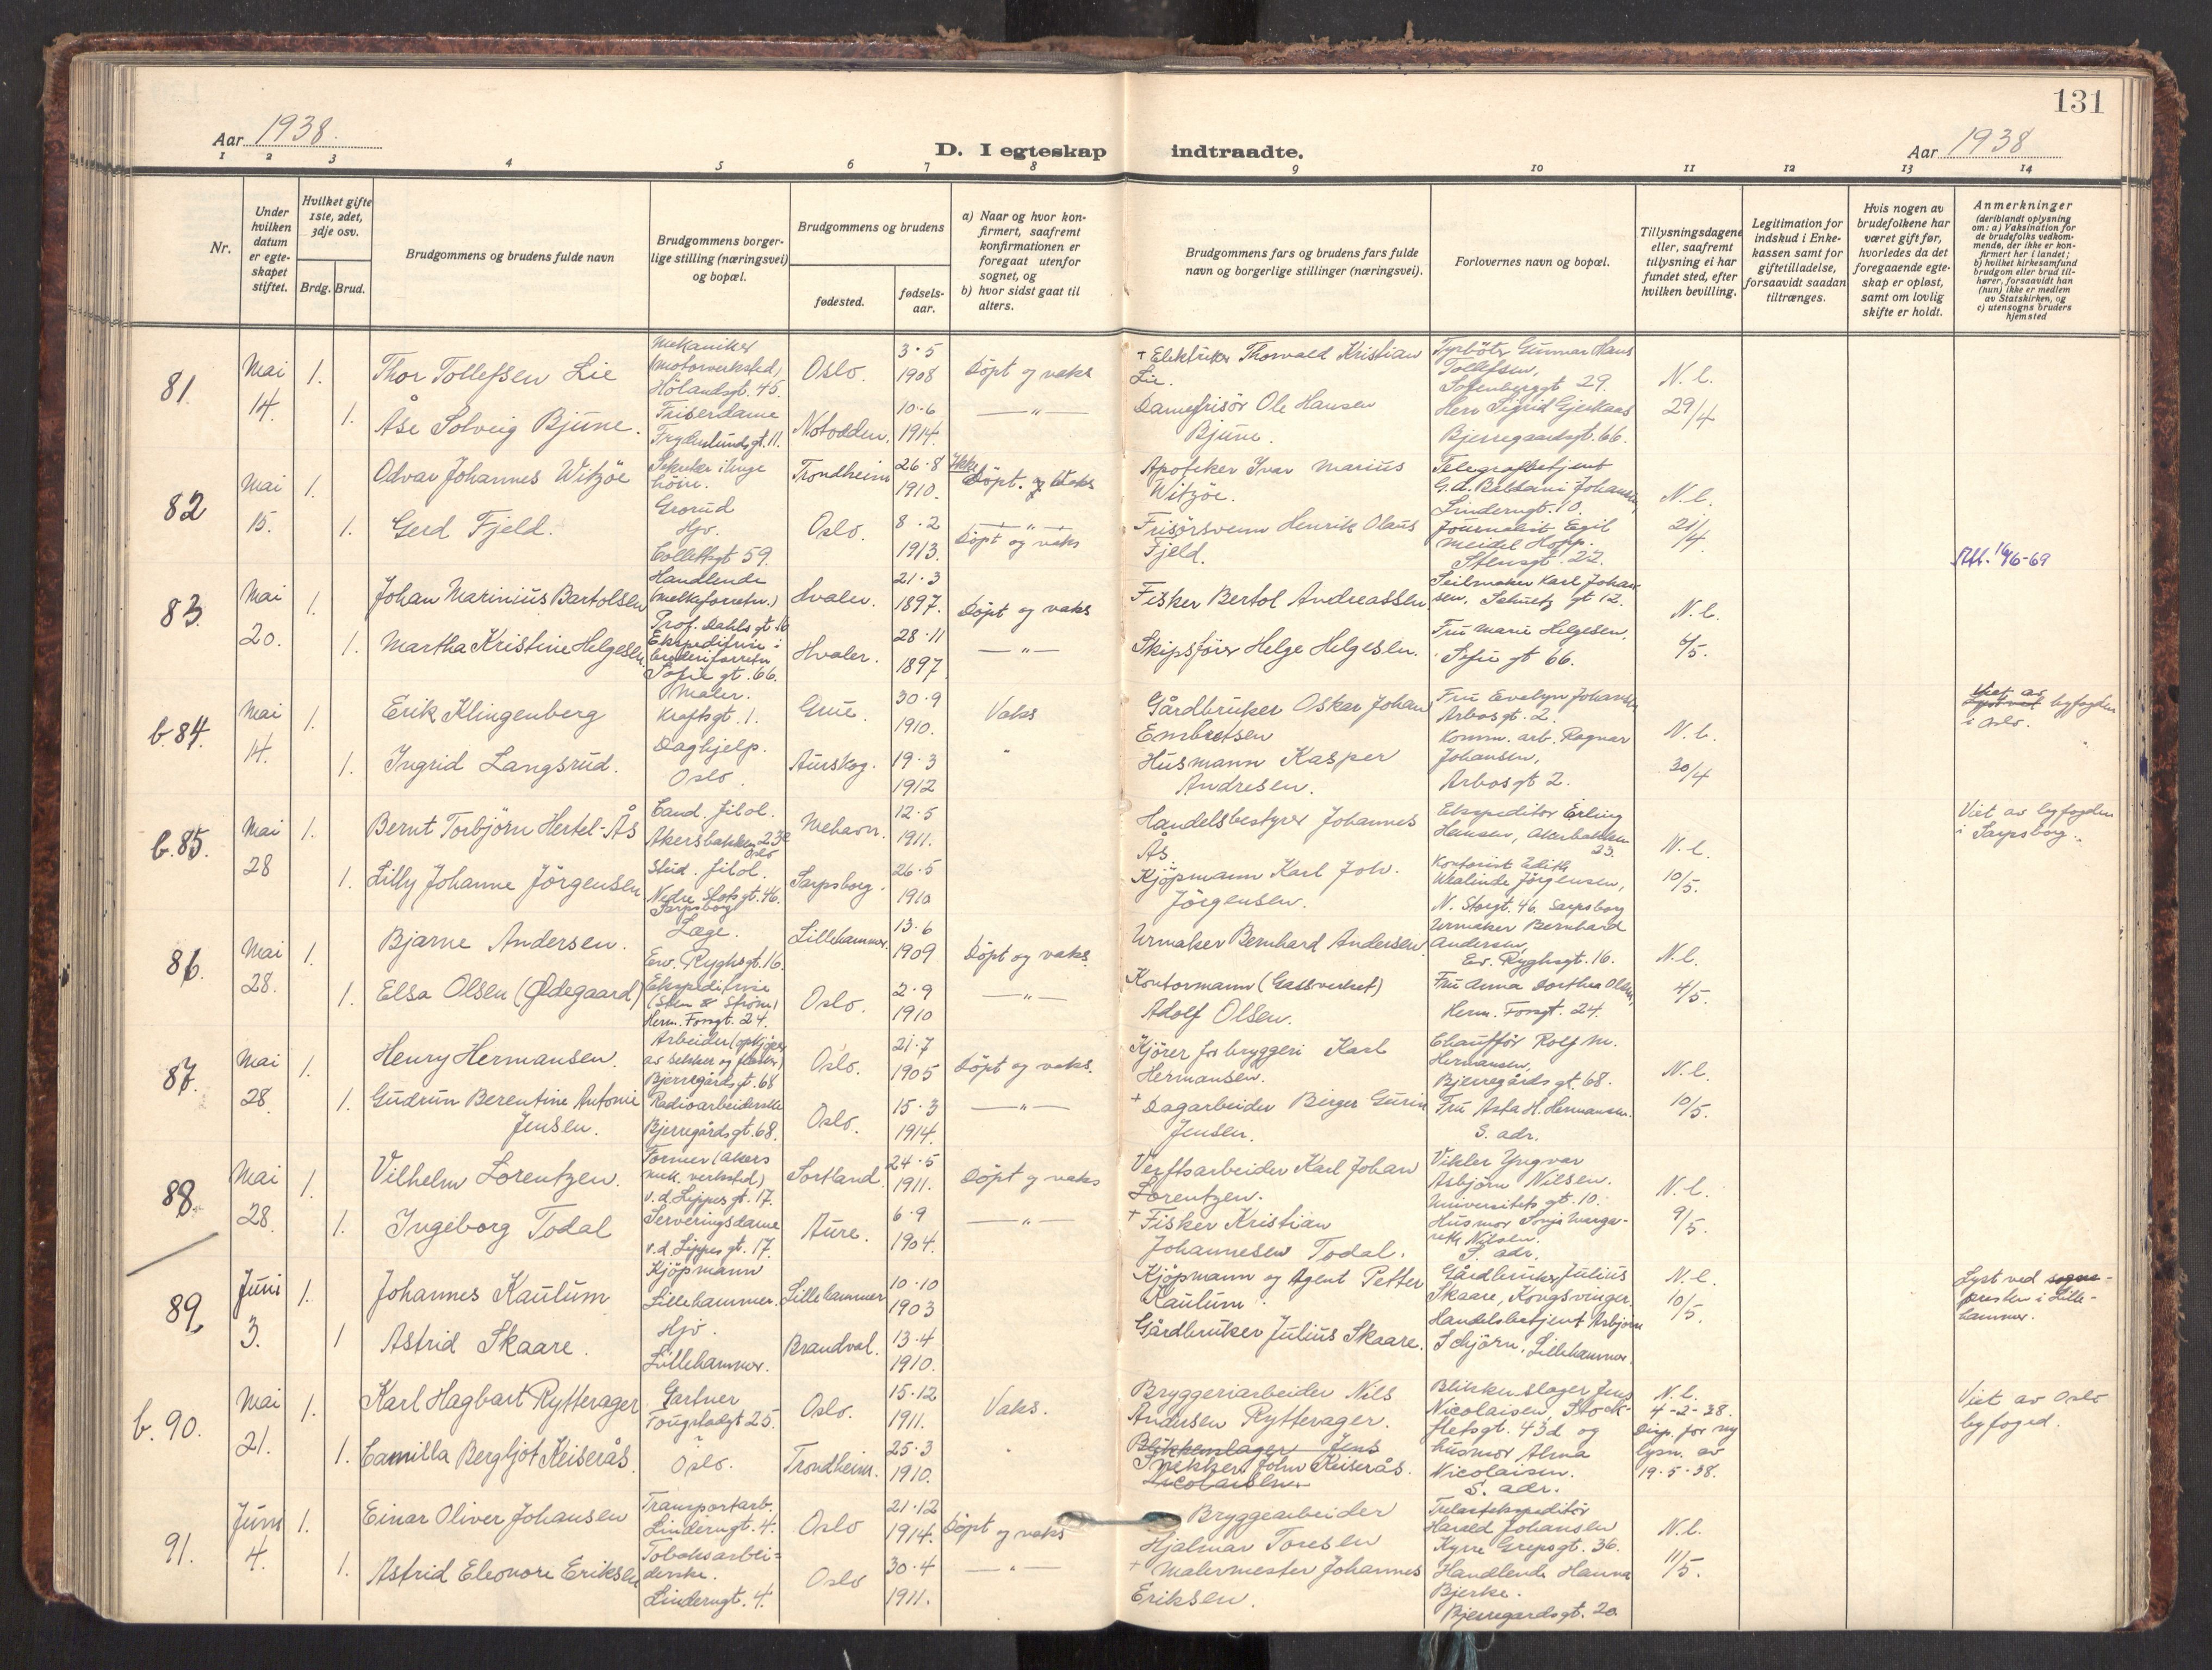 131
Aar 1938.
D. I egteskap indtraadte.
Aar 1938
1 2 3 4 5 6 7 8 9 10 11 12 13 14
Nr.
Under hvilken datum er egteskapet stiftet.
Hvilket gifte 1ste, 2det, 3dje osv.
Brdg. Brud.
Brudgommens og brudens fulde navn
Brudgommens borgerlige stilling (næringsvei) og bopæl.
Brudgommens og brudens
fødested.
fødselsaar.
a) Naar og hvor konfirmert, saafremt konfirmationen er foregaat utenfor sognet, og
b) hvor sidst gaat til alters.
Brudgommens fars og brudens fars fulde navn og borgerlige stillinger (næringsvei).
Forlovernes navn og bopæl.
Tillysningsdagene eller, saafremt tillysning ei har fundet sted, efter hvilken bevilling.
Legitimation for indskud i Enkekassen samt for giftetilladelse, forsaavidt saadan tiltrænges.
Hvis nogen av brudefolkene har været gift før, hvorledes da det foregaaende egteskap er opløst, samt om lovlig skifte er holdt.
Anmerkninger
(deriblandt oplysning om: a) Vaksination for de brudefolks vedkommende, der ikke er konfirmert her i landet; b) hvilket kirkesamfund brudgom eller brud tilhører, forsaavidt han (hun) ikke er medlem av Statskirken, og c) utensogns bruders hjemsted
81. Mai 14. 1. Thor Tollefsen Lie Mekaniker (motorverksted) Hölandsgt. 45. Oslo. 3·5 1908 Döpt og vaks + Elektriker Thorvald Kristian Lie. Gunnar Hans Tollefsen, Sofenberggt 29. N. l. 29/4
1. Åse Solveig Bjune. Friserdame Frydenlundsgt. 11. Notodden. 10·6 1914. —"— Damefrisör Ole Hansen Bjune. Herr Sigrid Bjerregaardsgt. 66.
82 Mai 15. 1. Odvar Johannes Witzöe Grorud Trondheim 26·8 1910. Ikke Döpt. og Vaks Apoteker Ivar Marius Witzöe. Telegrafbetjent Johansen, Linderngt. 10. N. l. 21/4
1. Gerd Fjeld. Hjv. Colletsgt 59. Oslo. 8·2 1913. —"— Döpt og vaks Frisörsvenn Henrik Olaus Fjeld. Journalist Egil Meidel Hopp. Stensgt. 22. 16/6-69
83. Mai 20. 1. Johan Marinius Bartolsen Handlende (melkeforretn.) Prof. Dahls gt 16 Hvaler. 21·3 1897. Döpt og vaks Fisker Bertol Andreassen Seilmaker Karl Johansen, Schultz gt 12. N. l. 6/5.
1. Martha Kristine Helgesen. Ekspeditrise i Sofie gt. 66. Hvaler. 28·11 1897 —"— Skipsförer Helge Helgesen. Fru Marie Helgesen. Sofie gt 66.
b. 84. Mai 14. 1. Erik Klingenberg Maler. Kraftsgt. 1. Grue. 30·9 1910. Vaks Gårdbruker Oskar Johan Embretsen Fru Evelyn Johansen Arbosgt. 2. N. l. 30/4 Viet av byfogden i Oslo.
1. Ingrid Langsrud. Daghjelp. Oslo. Aurskog. 19·3 1912 " Husmann Kasper Andresen. Komm. arb. Ragnar Johansen, Arbosgt 2.
b. 85. Mai 28 1. Bernt Torbjörn Hertel-Ås Cand. filol. Akersbakken 23 Oslo Mehavn. 12·5 1911. Handelsbestyrer Johannes Ås. Ekspeditör Erling Hansen, Akersbakken 23. N. l. 10/5. Viet av byfogden i Sarpsborg.
1. Lilly Johanne Jörgensen Stud. filol. Nedre Slotsgt. 46. Sarpsborg Sarpsborg. 26·5 1910 Kjöpmann Karl Joh. Jörgensen. Kontorist Edith Jörgensen, N. Storgt. 46. Sarpsborg
86. Mai 28. 1. Bjarne Andersen. Læge. Ew. Ryghsgt. 16. Lillehammer. 13·6 1909 Döpt og vaks. Urmaker Bernhard Andersen Urmaker Bernhard Andersen, Ew. Ryghsgt. 16. N. l. 4/5.
1. Elsa Olsen (Ødegaard) Ekspeditrise (Steen & Ström) Herm. Fossgt. 24. Oslo. 2·9 1910 —"— Kontormann (Gassverket) Adolf Olsen. Fru Anna Dorthea Olsen, Herm. Fossgt. 24.
87. Mai 28. 1. Henry Hermansen. Arbeider (opkjöper av sekker og flasker) Bjerregårdsgt. 68 Oslo. 21·7 1905 Döpt og vaks. Kjörer for bryggeri Karl Hermansen. Chauffør Rolf M. Hermansen, Bjerregårdsgt. 68. N. l. 10/5.
1. Gudrun Berentine Antonie Jensen. Radioarbeiderske Bjerregårdsgt. 68. Oslo. 15·3 1914. —"— + Dagarbeider Birger Jensen. Fru Asta H. Hermansen. S. adr.
88. Mai 28. 1. Vilhelm Lorentzen. Former (Akers mek. verksted) v. d. Lippes gt. 17. Sortland. 24·5 1911. Döpt og vaks Verftsarbeider Karl Johan Lorentzen. Vikler Yngvar Asbjörn Nilsen. Universitets gt. 10. N. l. 9/5.
1. Ingeborg Todal Serveringsdame v. d. Lippes gt. 17. Aure. 6·9 1904. —"— + Fisker Kristian Johannesen Todal. Husmor Sonja Margareth Nilsen. S. adr.
89. Juni 3. 1. Johannes Kaulum Kjöpmann Lillehammer. Lillehammer 10·10 1903 Kjöpmann og Agent Petter Kaulum. Gårdbruker Julius Skaare, Kongsvinger. N. l. 10/5. Lyst ved sognepresten i Lillehammer.
1 Astrid Skaare. Hjv. Lillehammer. Brandval. 13·4 1910. Gårdbruker Julius Skaare. Handelsbetjent Asbjörn Schjörn, Lillehammer.
b. 90. Mai 21. 1. Karl Hagbart Rytterager Gartner Tougstadgt 25. Oslo. 15·12 1911. Vaks. Bryggeriarbeider Nils Andersen Rytterager. Blikkenslager Jens Nicolaisen, Stockfletsgt. 43d og husmor Alma Nicolaisen. S. adr. N. l. 4-2-38. Disp. for ny lysn. av 19·5·38. Viet av Oslo byfoged.
1. Camilla Bergljot Keiserås. Oslo. Trondheim. 25·3 1910. " Blikkenslager Jens Nicolaisen. Snekker John Keiserås.
91. Juni 4. 1. Einar Oliver Johansen Transportarb. Linderngt. 4. Oslo 21·12 1914. Döpt og vaks Bryggearbeider Hjalmar Toresen Trelastekspeditör Harald Johansen Kyrre Grepsgt. 36. N. l. 11/5.
1. Astrid Eleonore Eriksen Tobaksarbeiderske. Linderngt. 4. Oslo 30·4 1911. —"— + Malermester Johannes Eriksen. Handlende Hanna Bjerke. Bjerregardsgt. 20.